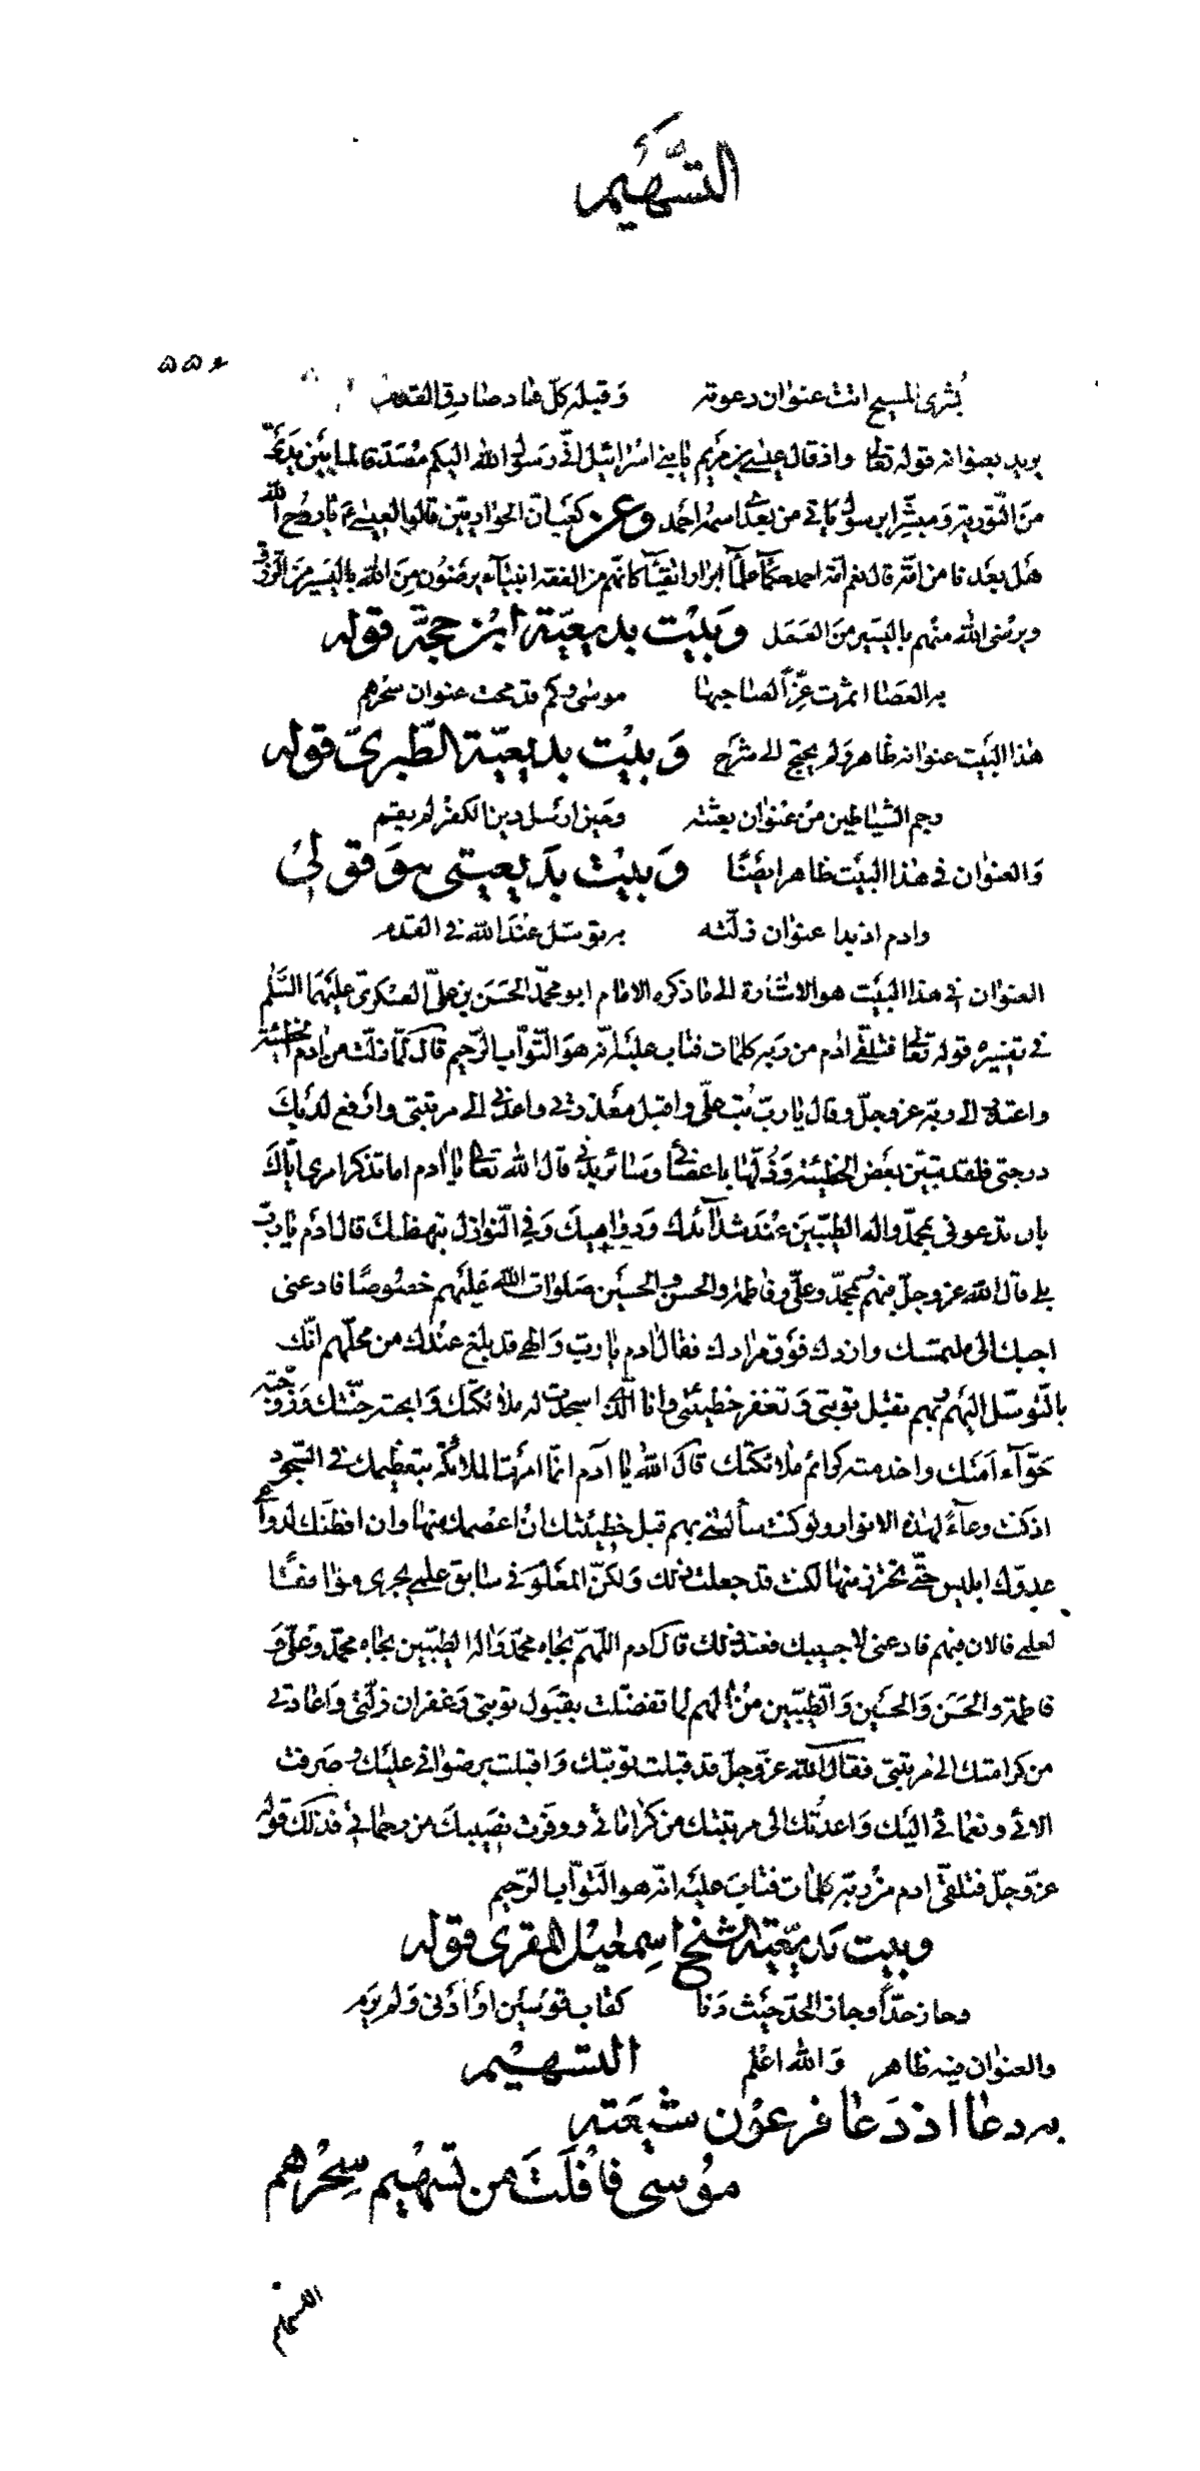 التسهيم
٥٥٤
بُشرى المسيح اتت عنوان دعوته وَقبله كلّ هاد صادق القدم
يريد بعنوانه قوله تعالى واذ قال عيسى بن مَريم يا بني اسرائيل انّي رَسول الله اليكم مصَدّقا لما بَين يَدَيَّ
منَ التّورية وَمبشّرا برسول ياتي من بَعدي اسمه احمَد وعن كعَب انّ الحواريّين قالوا لعيسى ع يا روُح الله
هَل بَعدنا من امّة قال نعم امّة احمد حكمآء علمآء ابرار اتقيآء كانهّم من الفقه انبيآء يرضَوُن مِنَ الله باليَسير منَ الرّزق
ويرضى الله منهُم باليَسير منَ العَمَل وَبيْت بديعيّة ابن حجّة قوله
به العَصا اثمرت عِزّاً لصاحبها موسى وكم قد محت عنوان سحرهم
هٰذا البَيت عنوانه ظاهر وَلم يحتج الى شرح وَبيْت بديعيّة الطّبريّ قوله
رجم الشياطين من عنوان بعثته وَحين ارسل دين الكفر لم يقم
وَالعنوان في هٰذا البيَت ظاهر ايضًا وَبيْت بَديعيتي هوَ قولي
وادم اذ بدا عنوان زلّته به توسّل عندَ الله في القدم
العنوان في هذا البيَت هو الاشارة الى ما ذكره الامام ابو محمّد الحَسَن بن عليّ العسكريّ عليَهمَا السّلم
في تفسير قوله تعالى فتلقّى ادم من رَبه كلمات فتاب عليَه انّه هوَ التّوّاب الرّحيم قال لمّا زلّت من ادم الخطيئة
واعتذر الى ربّه عز وجلّ وقال يا ربّ تب علَيّ واقبل معذرتي واعدني الى مرتبتي وارفع لديَكَ
درجتي فلقد تبيّن بعَض الخطيئة وَذُلّها باعضائي وَسائر بدني قال الله تعالى يا ادم اما تذكر امري ايّاكَ
بان تدعوني بمحمّد واله الطيّبيَن عندَ شدآئدك وَدواهيكَ وَفي النّوازل تبهظكَ قال ادَم يا ربّ
بلى قال الله عز وجلّ فبهم بمحمّد وعليّ وفاطمة والحسن والحسيَن صَلوات الله عَليهم خصوصًا فادعني
اجبك الى ملتمسك وازدك فوَق مرادك فقال ادم يا ربّ وَالهي قد بلغ عندك من محلّهم انّك
بالتّوسّل اليَهم وبهم تقبل توبتي وَتغفر خطيئتي وانا الّذي اسجدت له ملائكتك وَابحته جنّتك وَزوّجته
حَوّآء اَمتك واخدمته كرائم ملائكتك قالَ اللهُ يا آدم انّما امَرت الملائكة بتعظيمك في السّجود
اذ كنت وعآءً لهٰذه الانوار ولو كنت سألتني بهم قبل خطيئتك ان اعصمك منها وان افطنك لدواعي
عدوّك ابليس حتّى تحترز منها لكنت قد جعلت ذلك وَلكنّ المعَلوم في سابق علمي يجري موافقًا
لعلمي فالان فبهم فادعني لاجيبك فعند ذلك قال ادم اللّهمّ بجاه محمّد وَاله الطيّبين بجاه محمّد وَعليّ وَ
فاطمة والحَسَن وَالحسَين وَالطّيّبين من الهم لما تفضّلت بقبَول توبتي وَغفران زلّتي وَاعادتي
من كرامتك الى مرتبتي فقال الله عزّ وجلّ قد قبلت توبتك وَاقبلت برضواني عليَك وَصَرفت
الائي ونعمائي اليَك وَاعدتك الى مرتبتك من كراماتي ووفرّت نصَيبكَ من رحماتي فذلك قوله
عزّ وجلّ فتلقّى ادم من ربّه كلمات فتابَ عليَه انّه هو التوّاب الرّحيم
وبيت بديعيّة الشيخ اسمٰعيل المقري قوله
وحاز حدّاً وجاز الحدّ حيَث دَنا كقاب قوَسَين اوَ ادَنى وَلم يَرَم
والعنوان فيه ظاهر وَالله اعلم التسهيم
به دعا اذ دَعا فرعوْن شيعَته
موُسى فافلَتَ من تسهيم سِحرهم